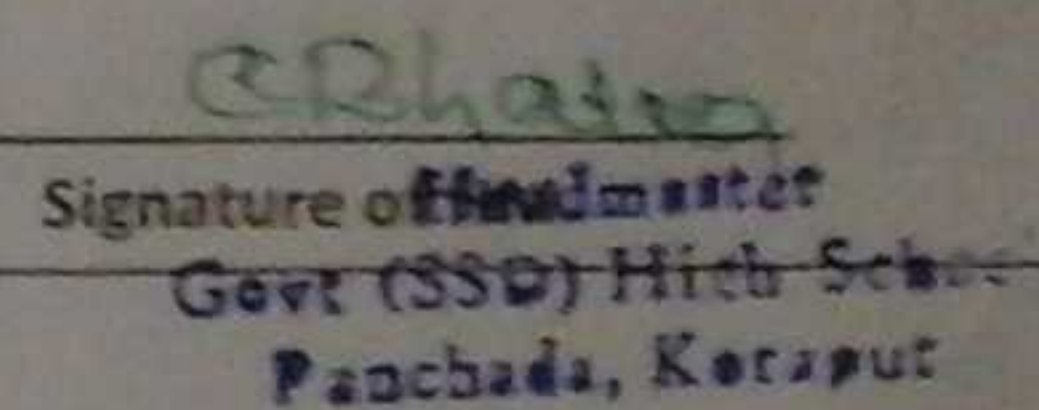 CRhaira
Signature of Headmaster
Govt (SSD) High Schoo
Panchada, Koraput